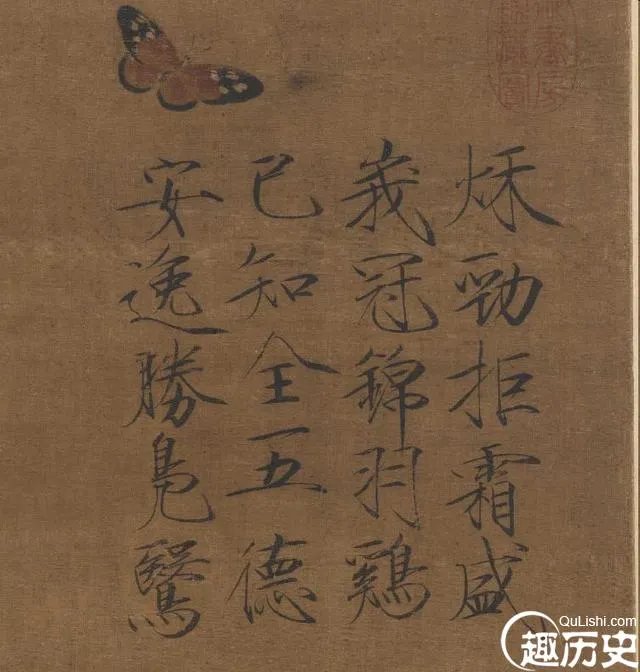 秌勁拒霜盛
峩冠錦羽鷄
已知全五德
安逸勝鳧鷖
QuLishi.com
趣历史